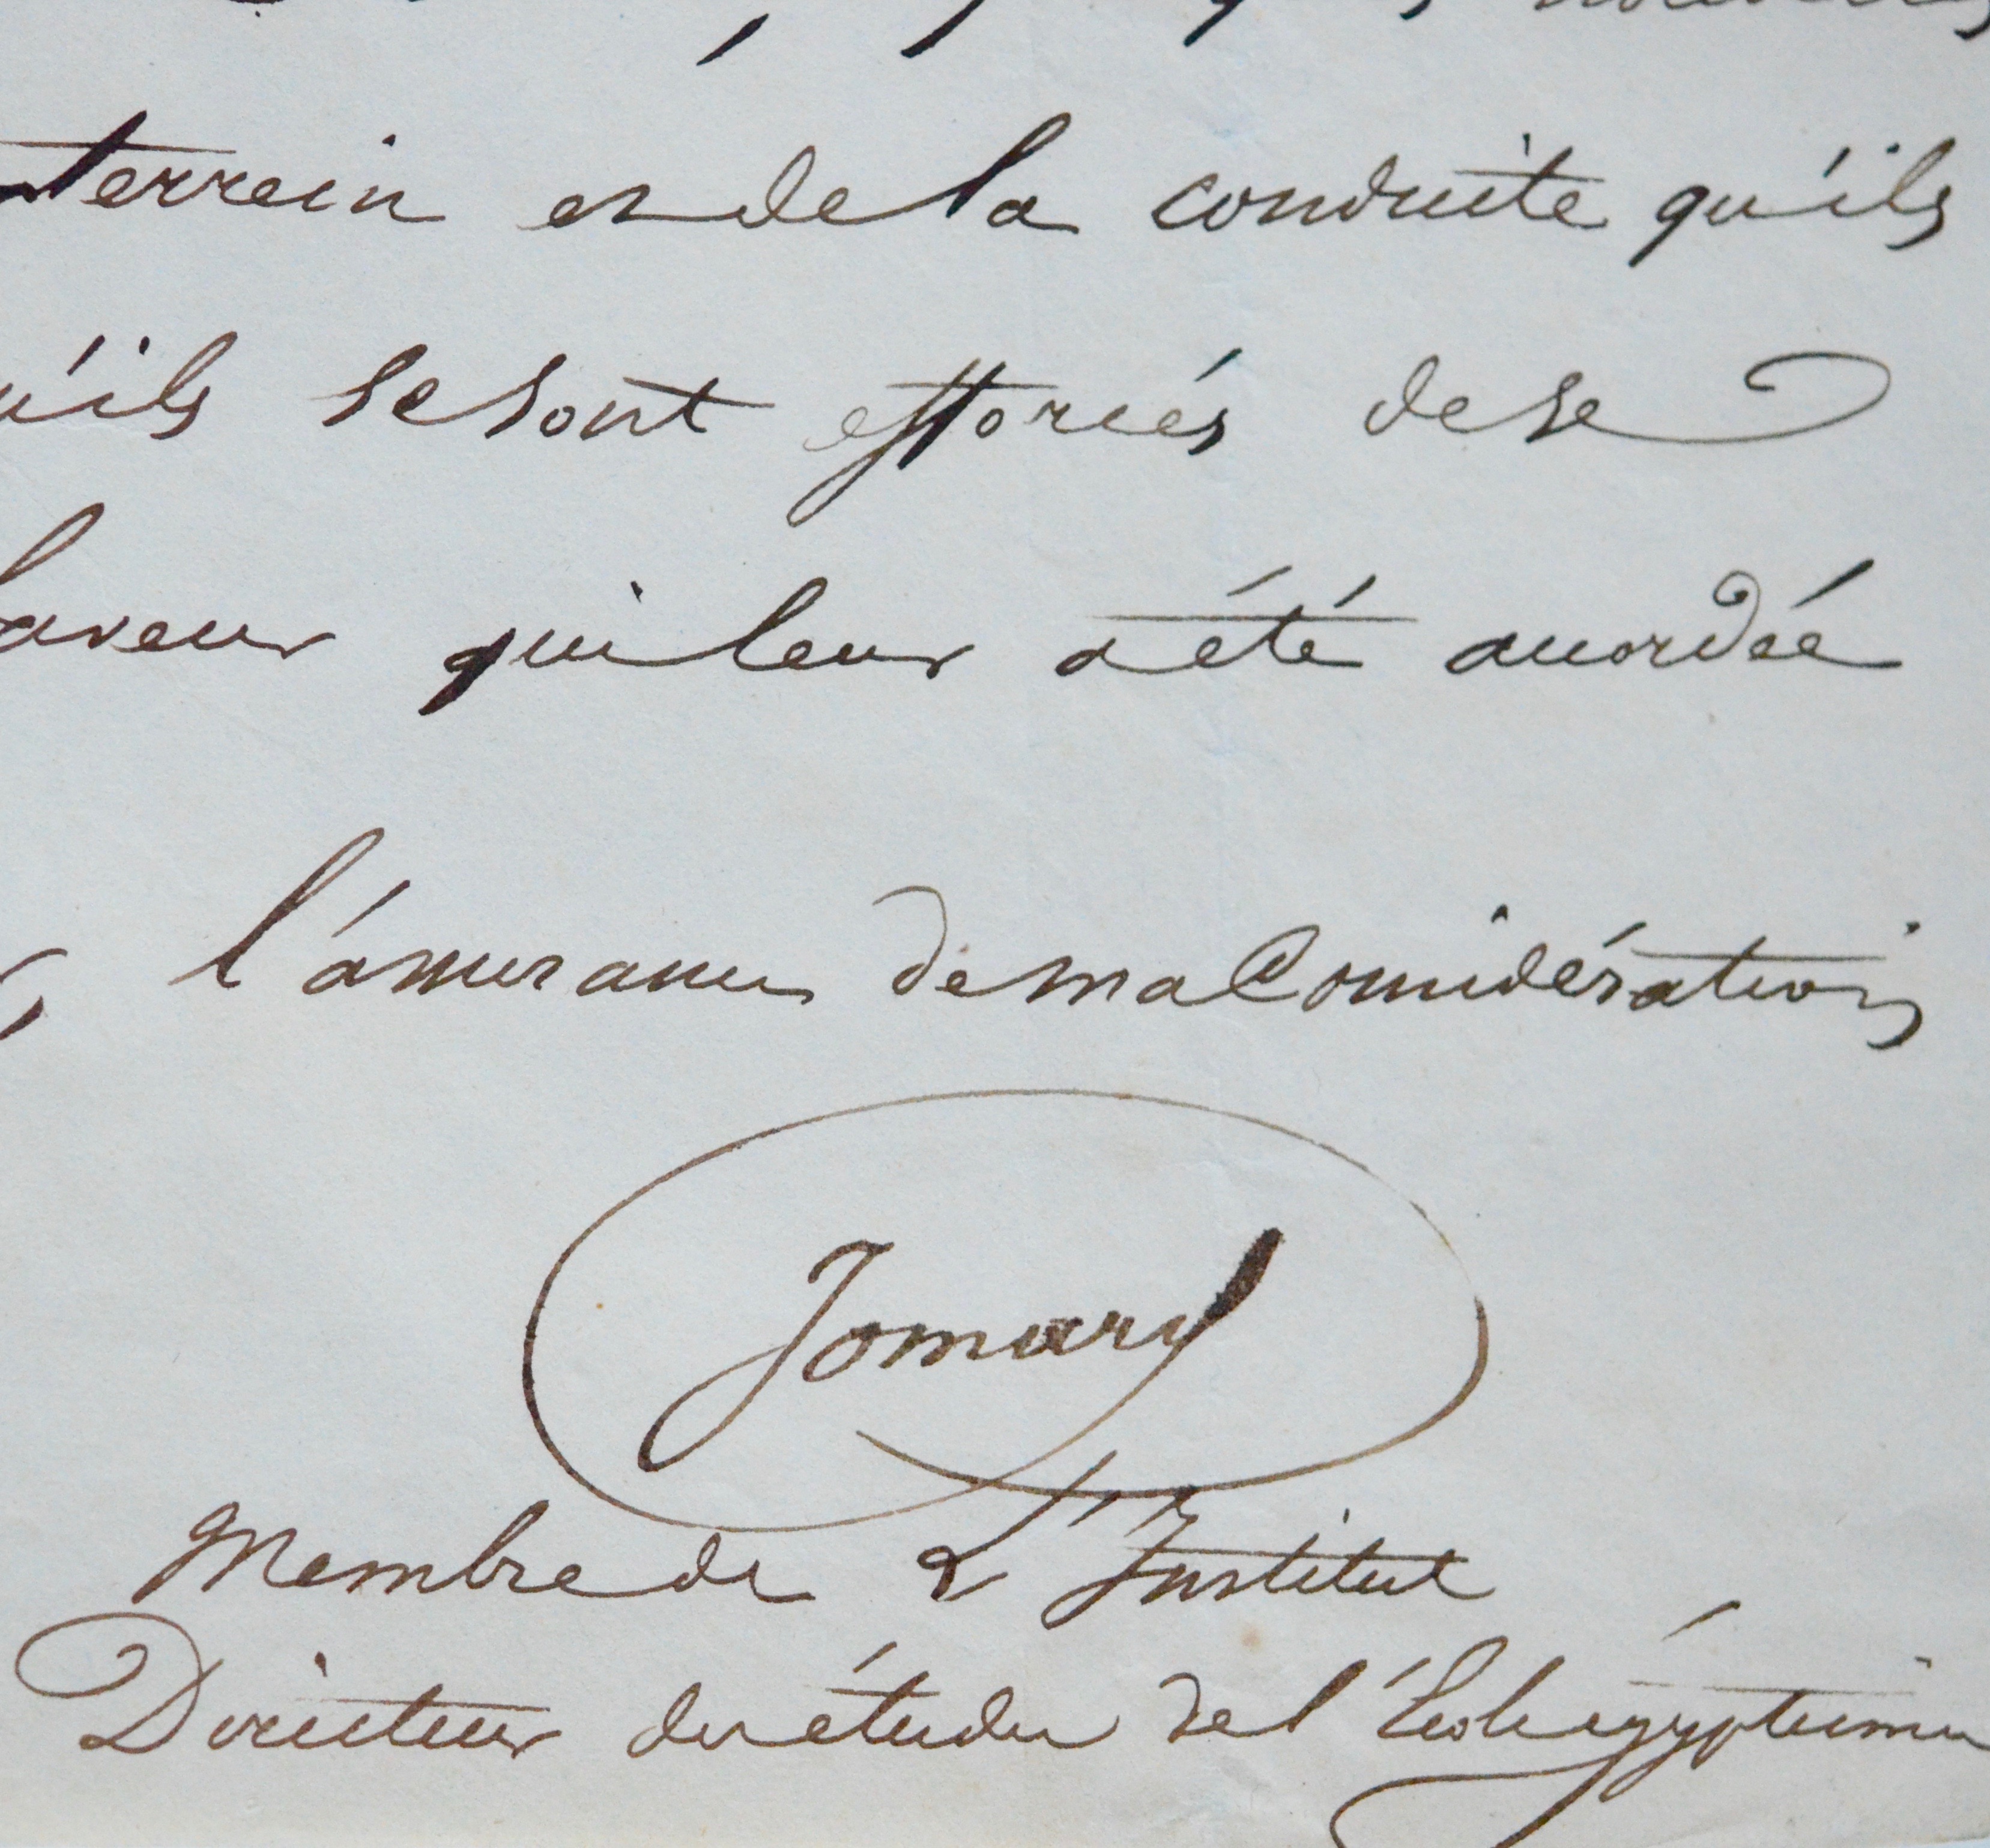 terrein et de la conduite qu'ils
u'ils se sont efforcés de se
faveur qui leur a été accordée
l'assurance de ma Considération
Jomard
Membre de L'Institut
Directeur des études de l'École égyptienne